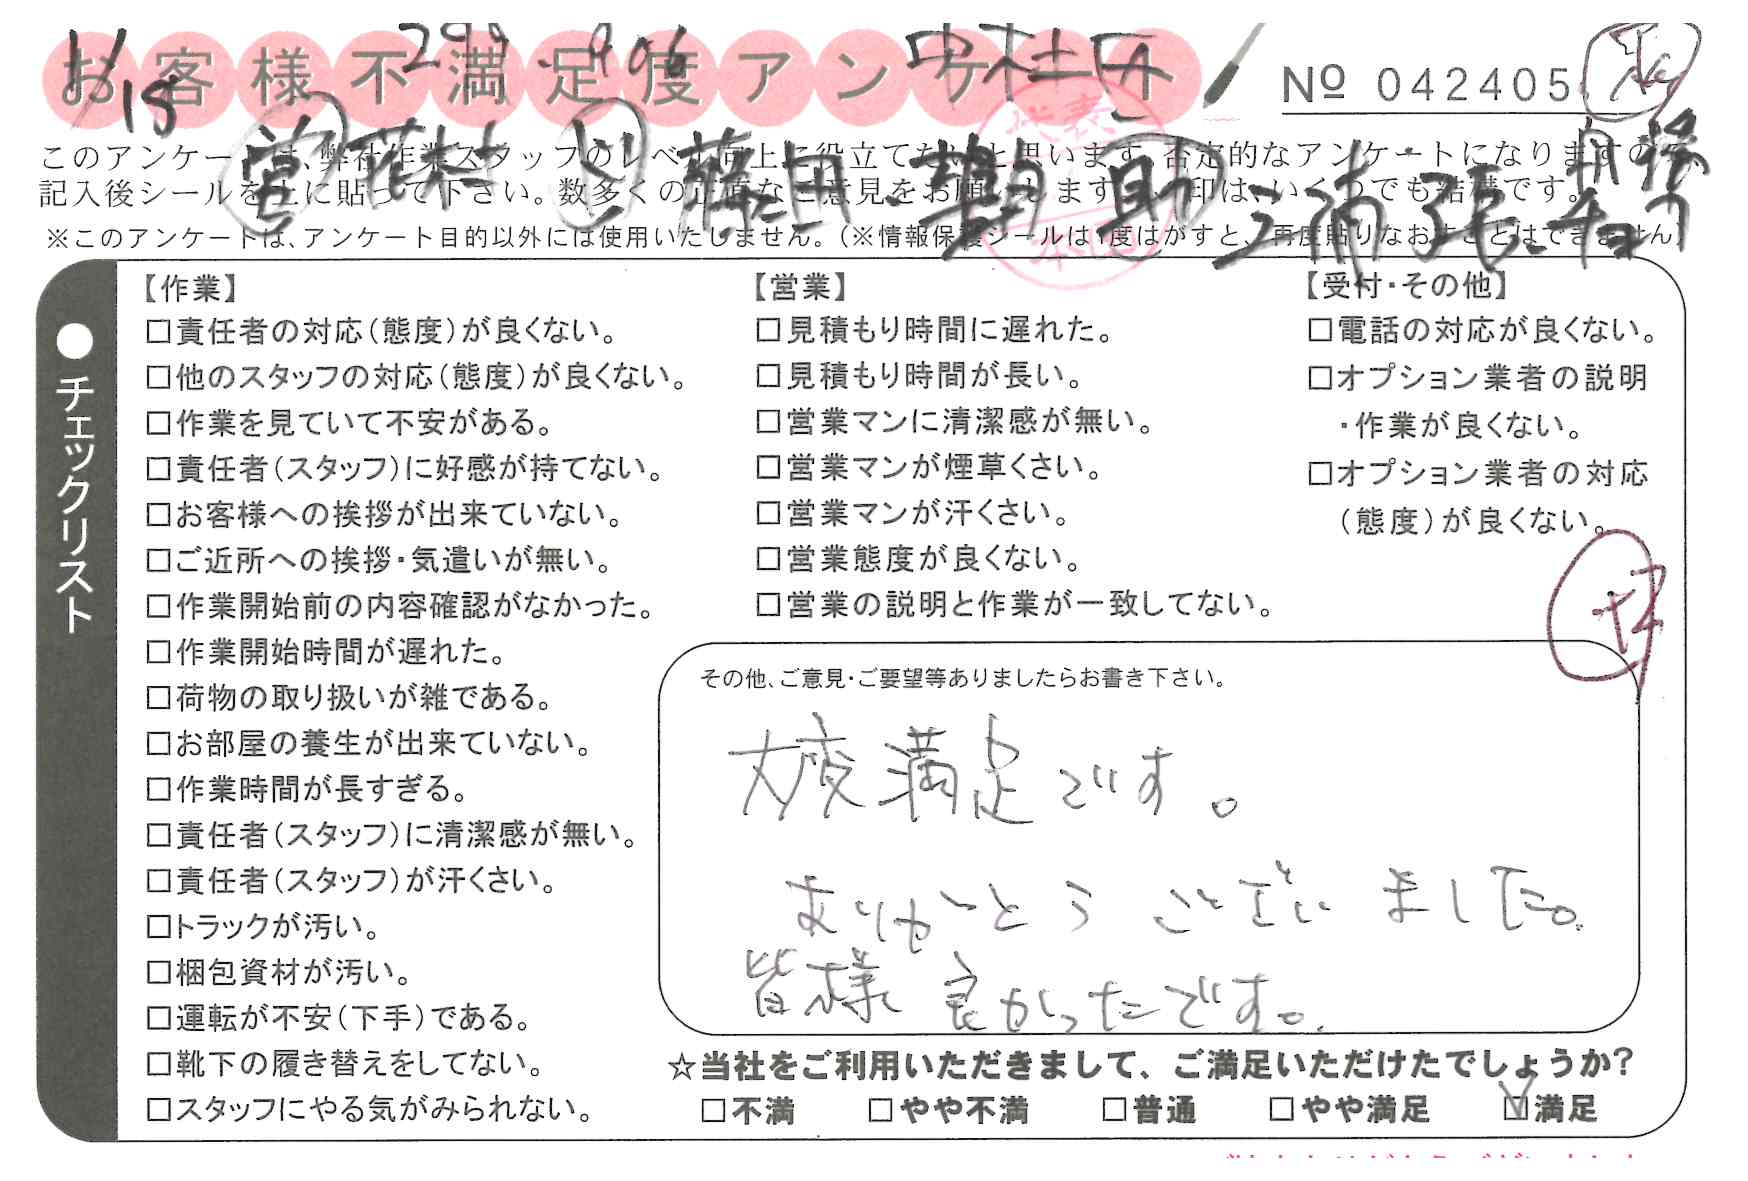 お客様不満足度アンケート
№ 042405
1/15
このアンケートは、弊社作業スタッフのレベル向上に役立てたいと思います。否定的なアンケートになりますので、
記入後シールを上に貼って下さい。数多くの正直なご意見をお願いします。レ印は、いくつでも結構です。
※このアンケートは、アンケート目的以外には使用いたしません。(※情報保護シールは1度はがすと、再度貼りなおすことはできません
チェックリスト
【作業】
□責任者の対応(態度)が良くない。
□他のスタッフの対応(態度)が良くない。
□作業を見ていて不安がある。
□責任者(スタッフ)に好感が持てない。
□お客様への挨拶が出来ていない。
□ご近所への挨拶・気遣いが無い。
□作業開始前の内容確認がなかった。
□作業開始時間が遅れた。
□荷物の取り扱いが雑である。
□お部屋の養生が出来ていない。
□作業時間が長すぎる。
□責任者(スタッフ)に清潔感が無い。
□責任者(スタッフ)が汗くさい。
□トラックが汚い。
□梱包資材が汚い。
□運転が不安(下手)である。
□靴下の履き替えをしてない。
□スタッフにやる気がみられない。
【営業】
□見積もり時間に遅れた。
□見積もり時間が長い。
□営業マンに清潔感が無い。
□営業マンが煙草くさい。
□営業マンが汗くさい。
□営業態度が良くない。
□営業の説明と作業が一致してない。
【受付・その他】
□電話の対応が良くない。
□オプション業者の説明
・作業が良くない。
□オプション業者の対応
(態度)が良くない。
その他、ご意見・ご要望等ありましたらお書き下さい。
大変満足です。
ありがとうございました。
皆様良かったです。
☆当社をご利用いただきまして、ご満足いただけたでしょうか?
□不満 □やや不満 □普通 □やや満足 ☑満足